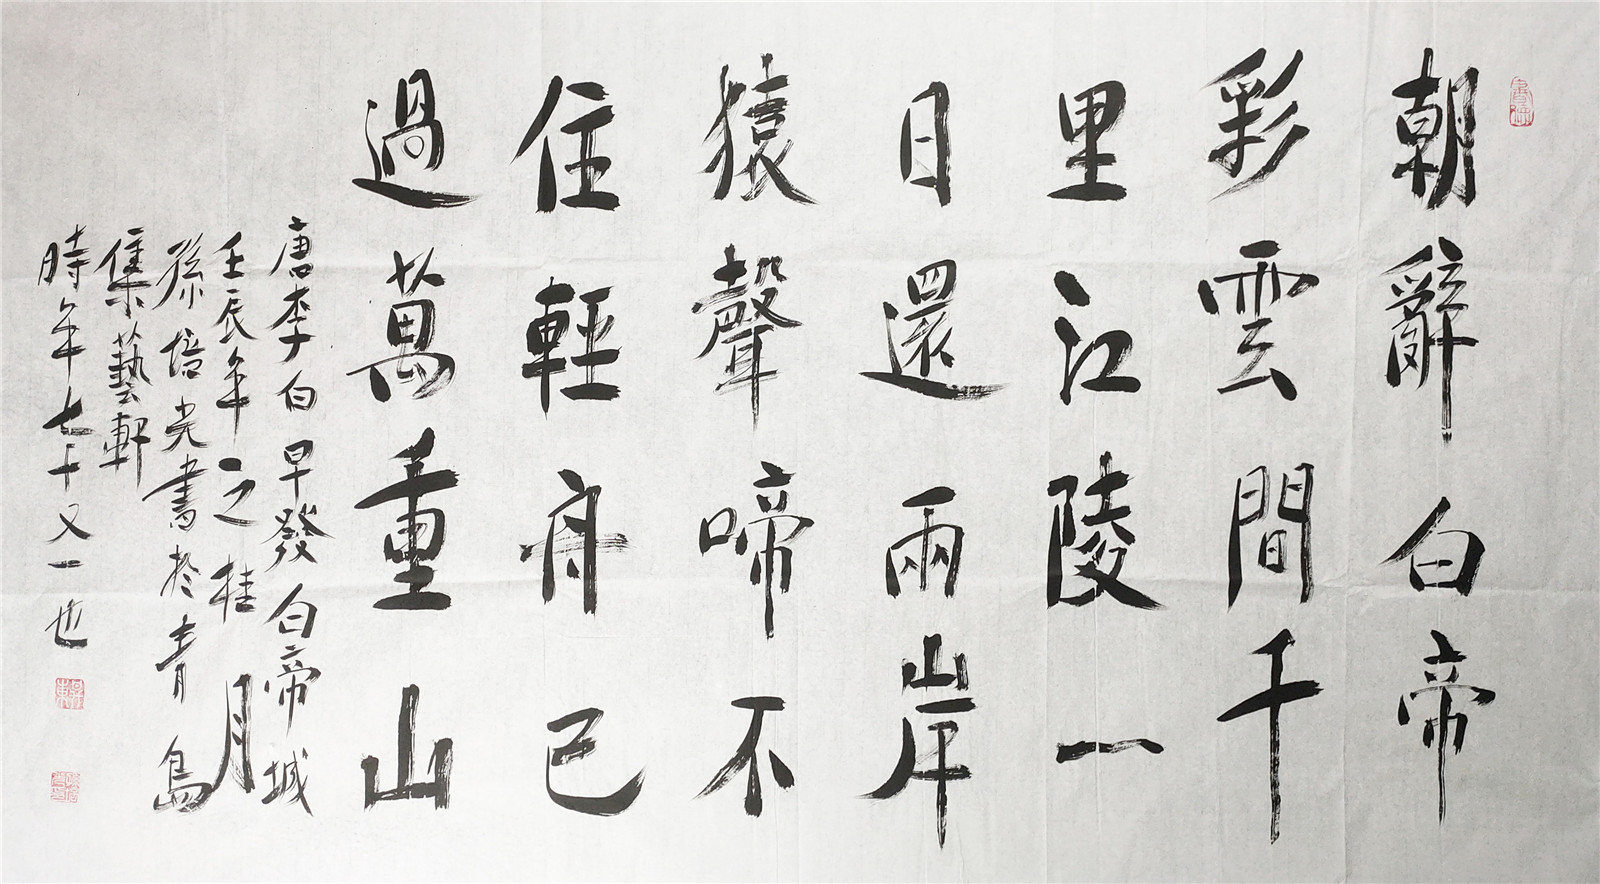 朝辭白帝
彩雲間千
里江陵一
日還兩岸
猿聲啼不
住輕舟已
過萬重山
唐李白早發白帝城
壬辰年之桂月
孫培堯書於青島
集藝軒
時年七十又一也